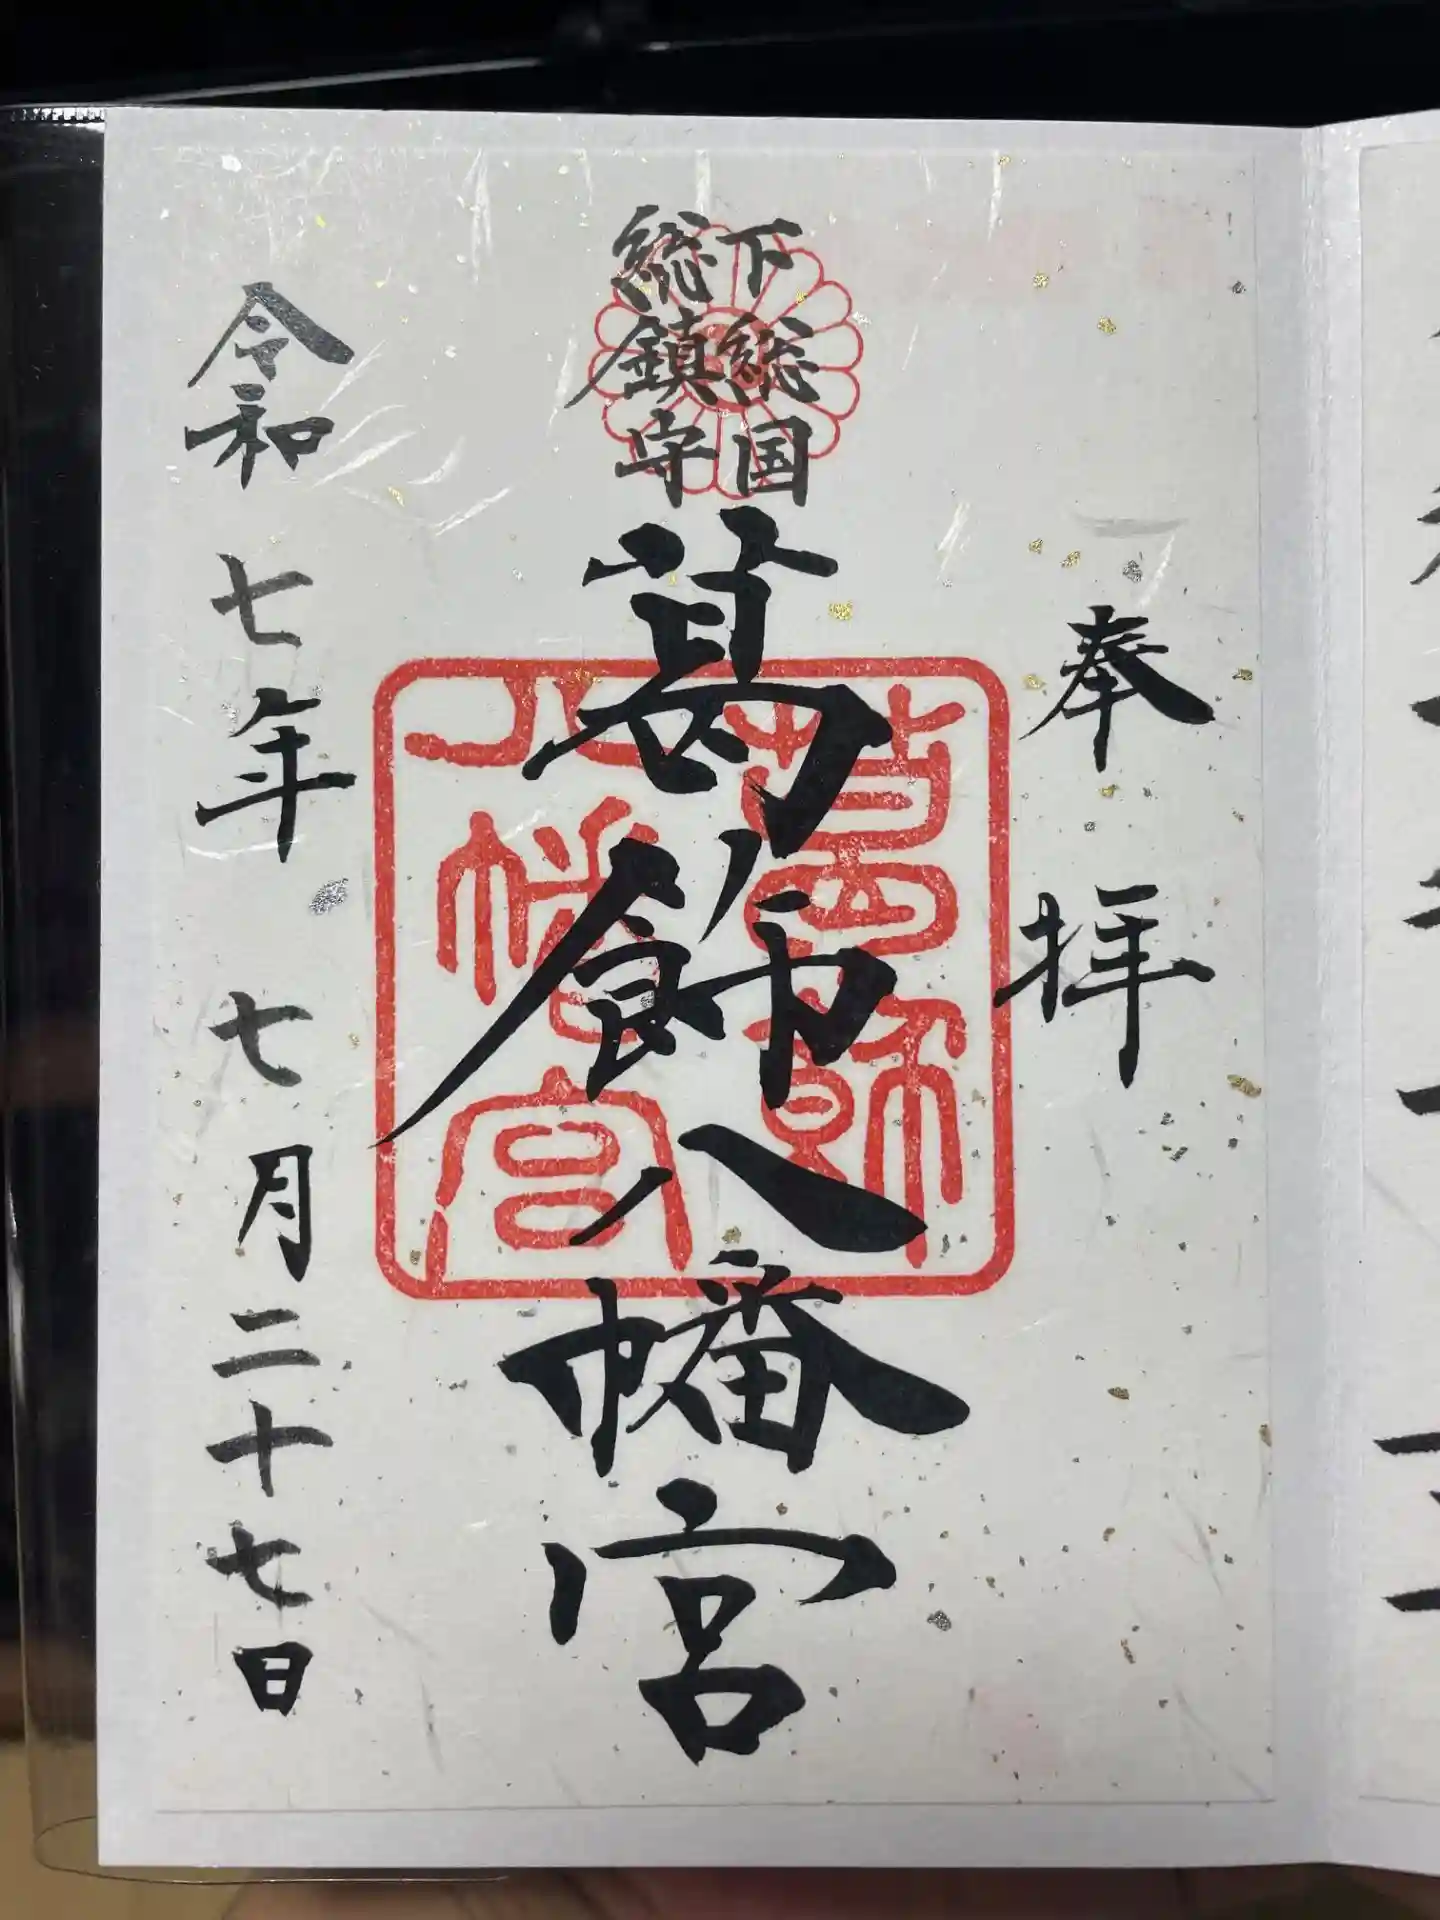 奉拝
下総国
総鎮守
葛飾八幡宮
葛飾
八幡宮
令和七年七月二十七日